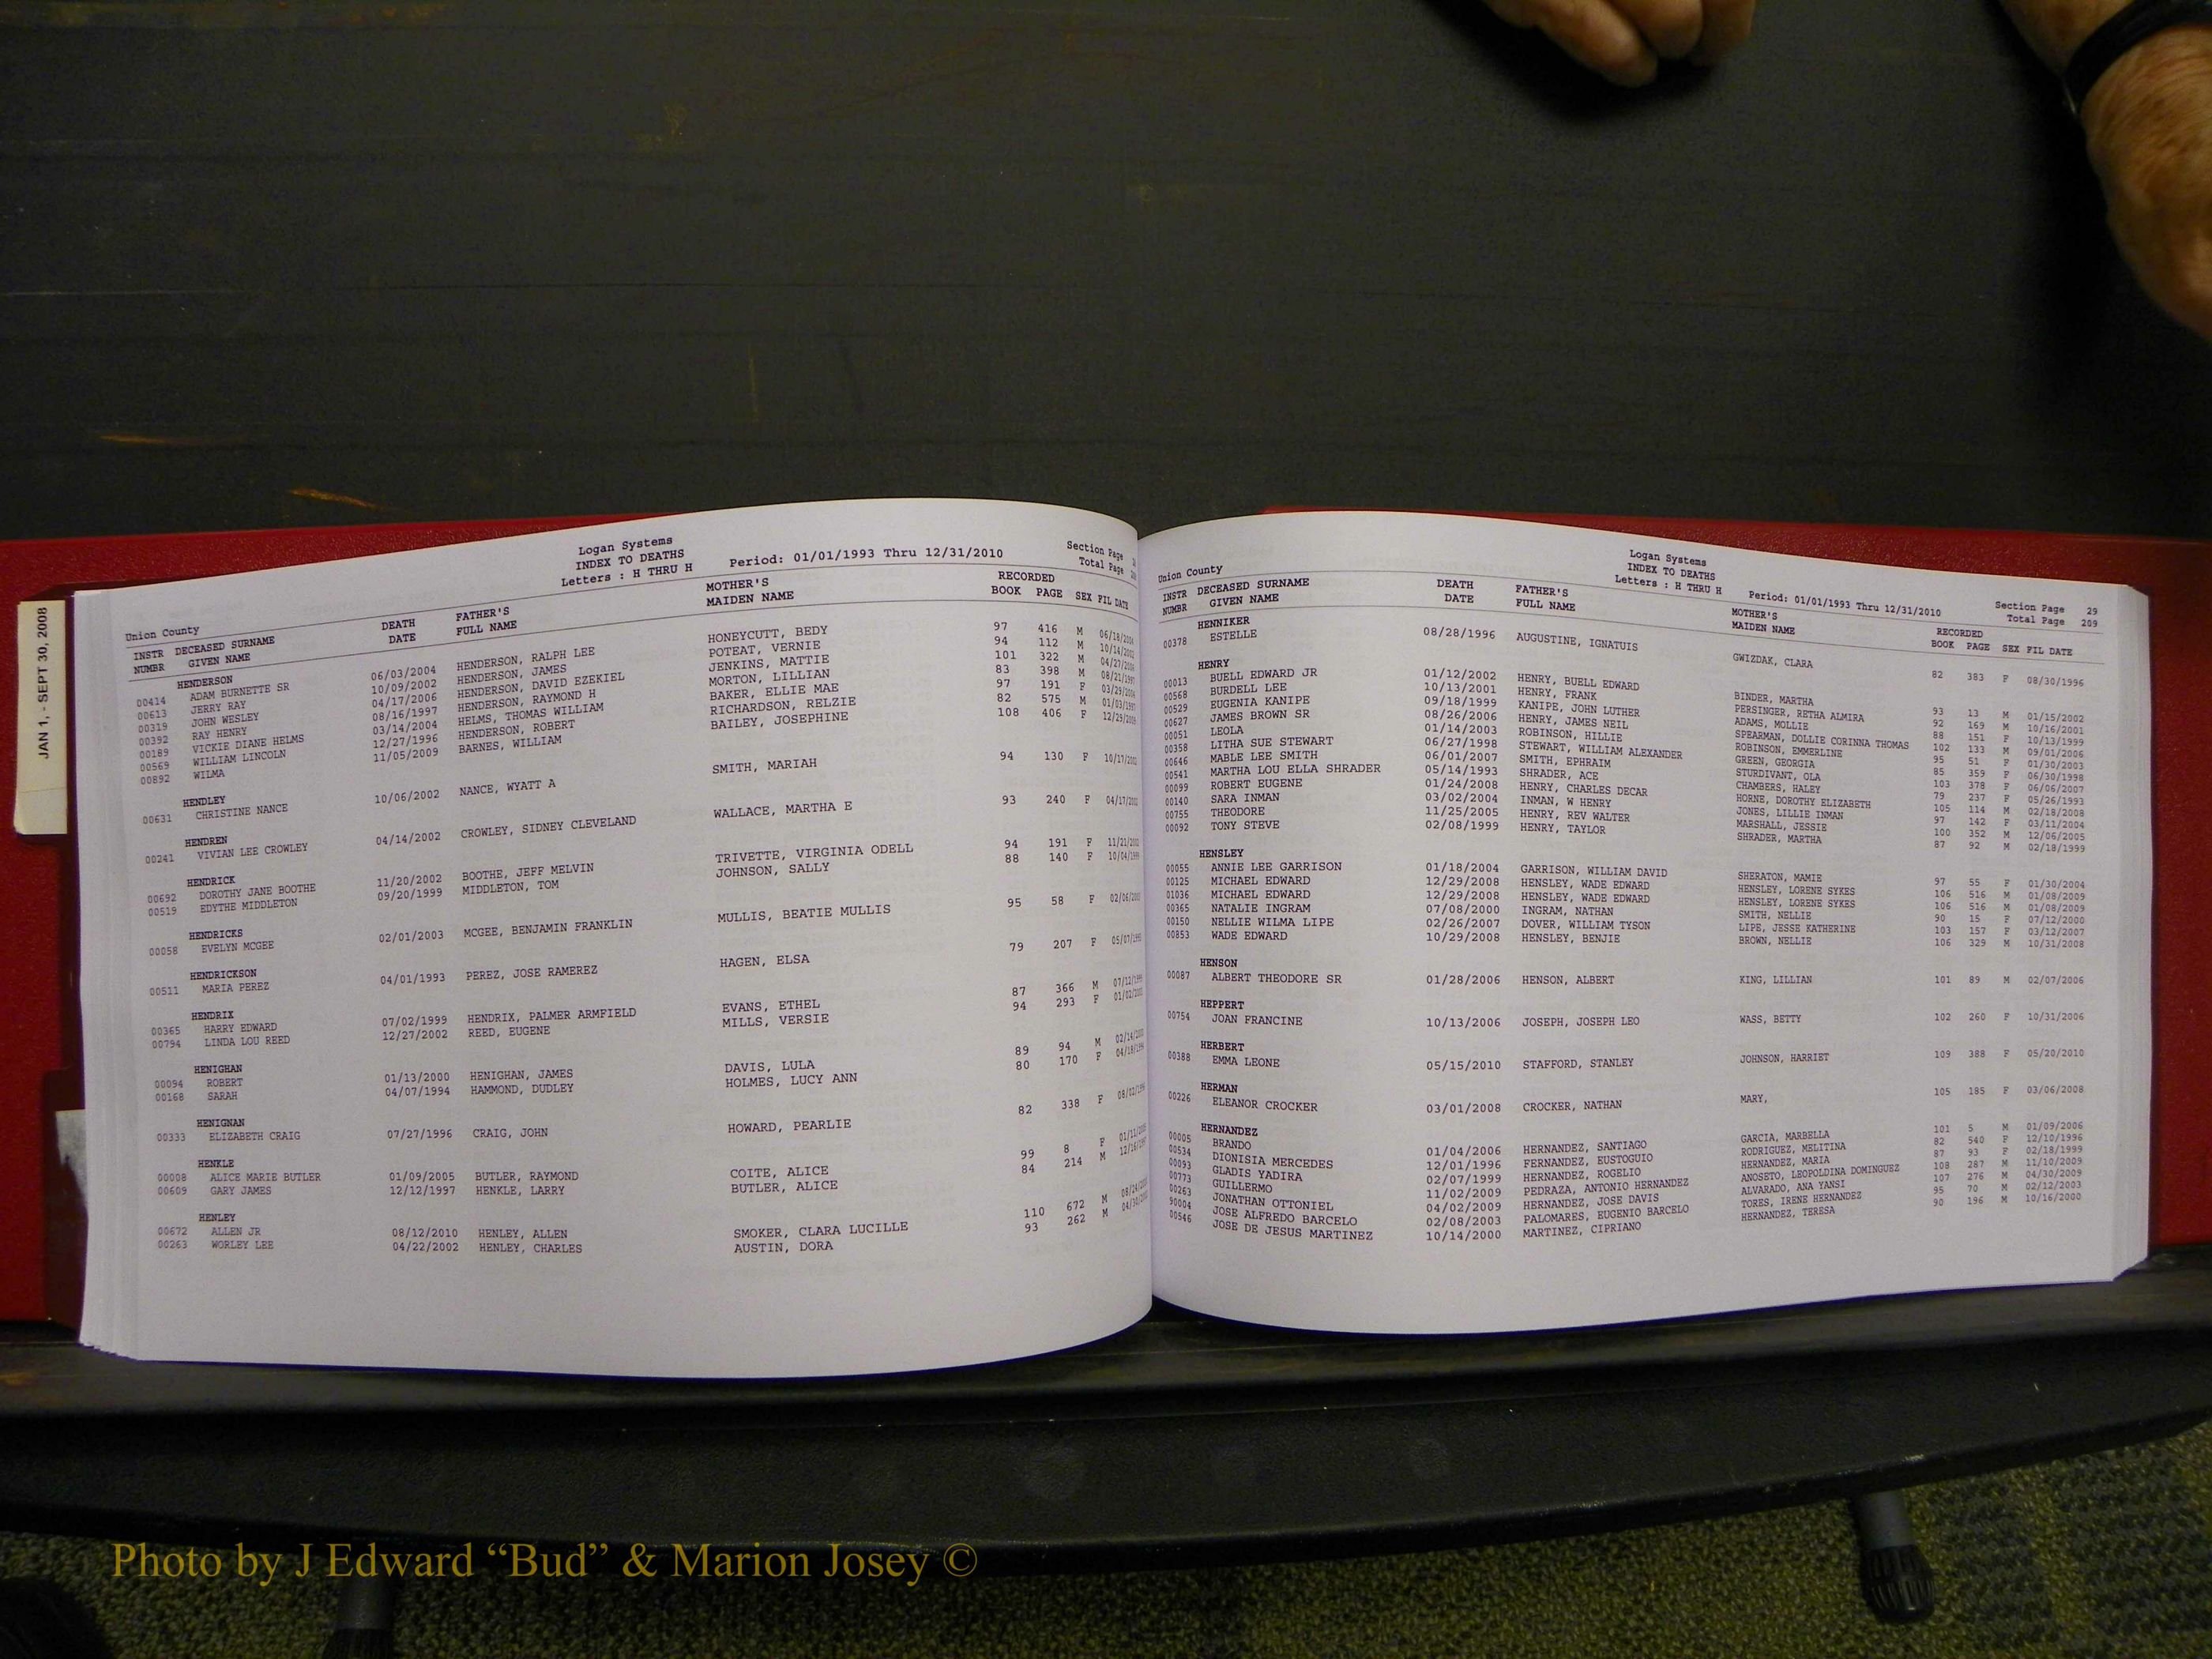 JAN 1, - SEPT 30, 2008
Logan Systems
INDEX TO DEATHS
Letters : H THRU H
Period: 01/01/1993 Thru 12/31/2010
Section Page
Total Page
Union County
INSTR DECEASED SURNAME DEATH FATHER'S MOTHER'S RECORDED
NUMBR GIVEN NAME DATE FULL NAME MAIDEN NAME BOOK PAGE SEX FIL DATE
HENDERSON
00414 ADAM BURNETTE SR 06/03/2004 HENDERSON, RALPH LEE HONEYCUTT, BEDY 97 416 M
00613 JERRY RAY 10/09/2002 HENDERSON, JAMES POTEAT, VERNIE 94 112 M 10/14/2002
00319 JOHN WESLEY 04/17/2006 HENDERSON, DAVID EZEKIEL JENKINS, MATTIE 101 322 M 04/27/2006
00392 RAY HENRY 08/16/1997 HENDERSON, RAYMOND H MORTON, LILLIAN 83 398 M 08/21/1997
00189 VICKIE DIANE HELMS 03/14/2004 HELMS, THOMAS WILLIAM BAKER, ELLIE MAE 97 191 F 03/29/2004
00569 WILLIAM LINCOLN 12/27/1996 HENDERSON, ROBERT RICHARDSON, RELZIE 82 575 M 01/03/1997
00892 WILMA 11/05/2009 BARNES, WILLIAM BAILEY, JOSEPHINE 108 406 F
HENDLEY
00631 CHRISTINE NANCE 10/06/2002 NANCE, WYATT A SMITH, MARIAH 94 130 F 10/17/2002
HENDREN
00241 VIVIAN LEE CROWLEY 04/14/2002 CROWLEY, SIDNEY CLEVELAND WALLACE, MARTHA E 93 240 F 04/17/2002
HENDRICK
00692 DOROTHY JANE BOOTHE 11/20/2002 BOOTHE, JEFF MELVIN TRIVETTE, VIRGINIA ODELL 94 191 F 11/21/2002
00519 EDYTHE MIDDLETON 09/20/1999 MIDDLETON, TOM JOHNSON, SALLY 88 140 F 10/04/1999
HENDRICKS
00058 EVELYN MCGEE 02/01/2003 MCGEE, BENJAMIN FRANKLIN MULLIS, BEATIE MULLIS 95 58 F 02/06/2003
HENDRICKSON
00511 MARIA PEREZ 04/01/1993 PEREZ, JOSE RAMEREZ HAGEN, ELSA 79 207 F
HENDRIX
00365 HARRY EDWARD 07/02/1999 HENDRIX, PALMER ARMFIELD EVANS, ETHEL 87 366 M 07/12/1999
00794 LINDA LOU REED 12/27/2002 REED, EUGENE MILLS, VERSIE 94 293 F
HENIGHAN
00094 ROBERT 01/13/2000 HENIGHAN, JAMES DAVIS, LULA 89 94 M
00168 SARAH 04/07/1994 HAMMOND, DUDLEY HOLMES, LUCY ANN 80 170 F
HENIGNAN
00333 ELIZABETH CRAIG 07/27/1996 CRAIG, JOHN HOWARD, PEARLIE 82 338 F
HENKLE
00008 ALICE MARIE BUTLER 01/09/2005 BUTLER, RAYMOND COITE, ALICE 99 8 F
00609 GARY JAMES 12/12/1997 HENKLE, LARRY BUTLER, ALICE 84 214 M
HENLEY
00672 ALLEN JR 08/12/2010 HENLEY, ALLEN SMOKER, CLARA LUCILLE 110 672 M
00263 WORLEY LEE 04/22/2002 HENLEY, CHARLES AUSTIN, DORA 93 262 M
Logan Systems
INDEX TO DEATHS
Letters : H THRU H
Period: 01/01/1993 Thru 12/31/2010
Section Page 29
Total Page 209
Union County
INSTR DECEASED SURNAME DEATH FATHER'S MOTHER'S RECORDED
NUMBR GIVEN NAME DATE FULL NAME MAIDEN NAME BOOK PAGE SEX FIL DATE
HENNIKER
00378 ESTELLE 08/28/1996 AUGUSTINE, IGNATUIS GWIZDAK, CLARA 82 383 F 08/30/1996
HENRY
00013 BUELL EDWARD JR 01/12/2002 HENRY, BUELL EDWARD BINDER, MARTHA 93 13 M 01/15/2002
00568 BURDELL LEE 10/13/2001 HENRY, FRANK PERSINGER, RETHA ALMIRA 92 169 M 10/16/2001
00529 EUGENIA KANIPE 09/18/1999 KANIPE, JOHN LUTHER ADAMS, MOLLIE 88 151 F 10/13/1999
00627 JAMES BROWN SR 08/26/2006 HENRY, JAMES NEIL SPEARMAN, DOLLIE CORINNA THOMAS 102 133 M 09/01/2006
00051 LEOLA 01/14/2003 ROBINSON, HILLIE ROBINSON, EMMERLINE 95 51 F 01/30/2003
00358 LITHA SUE STEWART 06/27/1998 STEWART, WILLIAM ALEXANDER GREEN, GEORGIA 85 359 F 06/30/1998
00646 MABLE LEE SMITH 06/01/2007 SMITH, EPHRAIM STURDIVANT, OLA 103 378 F 06/06/2007
00541 MARTHA LOU ELLA SHRADER 05/14/1993 SHRADER, ACE CHAMBERS, HALEY 79 237 F 05/26/1993
00099 ROBERT EUGENE 01/24/2008 HENRY, CHARLES DECAR HORNE, DOROTHY ELIZABETH 105 114 M 02/18/2008
00140 SARA INMAN 03/02/2004 INMAN, W HENRY JONES, LILLIE INMAN 97 142 F 03/11/2004
00755 THEODORE 11/25/2005 HENRY, REV WALTER MARSHALL, JESSIE 100 352 M 12/06/2005
00092 TONY STEVE 02/08/1999 HENRY, TAYLOR SHRADER, MARTHA 87 92 M 02/18/1999
HENSLEY
00055 ANNIE LEE GARRISON 01/18/2004 GARRISON, WILLIAM DAVID SHERATON, MAMIE 97 55 F 01/30/2004
00125 MICHAEL EDWARD 12/29/2008 HENSLEY, WADE EDWARD HENSLEY, LORENE SYKES 106 516 M 01/08/2009
01036 MICHAEL EDWARD 12/29/2008 HENSLEY, WADE EDWARD HENSLEY, LORENE SYKES 106 516 M 01/08/2009
00365 NATALIE INGRAM 07/08/2000 INGRAM, NATHAN SMITH, NELLIE 90 15 F 07/12/2000
00150 NELLIE WILMA LIPE 02/26/2007 DOVER, WILLIAM TYSON LIPE, JESSE KATHERINE 103 157 F 03/12/2007
00853 WADE EDWARD 10/29/2008 HENSLEY, BENJIE BROWN, NELLIE 106 329 M 10/31/2008
HENSON
00087 ALBERT THEODORE SR 01/28/2006 HENSON, ALBERT KING, LILLIAN 101 89 M 02/07/2006
HEPPERT
00754 JOAN FRANCINE 10/13/2006 JOSEPH, JOSEPH LEO WASS, BETTY 102 260 F 10/31/2006
HERBERT
00388 EMMA LEONE 05/15/2010 STAFFORD, STANLEY JOHNSON, HARRIET 109 388 F 05/20/2010
HERMAN
00226 ELEANOR CROCKER 03/01/2008 CROCKER, NATHAN MARY, 105 185 F 03/06/2008
HERNANDEZ
00005 BRANDO 01/04/2006 HERNANDEZ, SANTIAGO GARCIA, MARBELLA 101 5 M 01/09/2006
00534 DIONISIA MERCEDES 12/01/1996 FERNANDEZ, EUSTOGUIO RODRIGUEZ, MELITINA 82 540 F 12/10/1996
00093 GLADIS YADIRA 02/07/1999 HERNANDEZ, ROGELIO HERNANDEZ, MARIA 87 93 F 02/18/1999
00773 GUILLERMO 11/02/2009 PEDRAZA, ANTONIO HERNANDEZ ANOSETO, LEOPOLDINA DOMINGUEZ 108 287 M 11/10/2009
00263 JONATHAN OTTONIEL 04/02/2009 HERNANDEZ, JOSE DAVIS ALVARADO, ANA YANSI 107 276 M 04/30/2009
90004 JOSE ALFREDO BARCELO 02/08/2003 PALOMARES, EUGENIO BARCELO TORES, IRENE HERNANDEZ 95 70 M 02/12/2003
00546 JOSE DE JESUS MARTINEZ 10/14/2000 MARTINEZ, CIPRIANO HERNANDEZ, TERESA 90 196 M 10/16/2000
Photo by J Edward “Bud” & Marion Josey ©